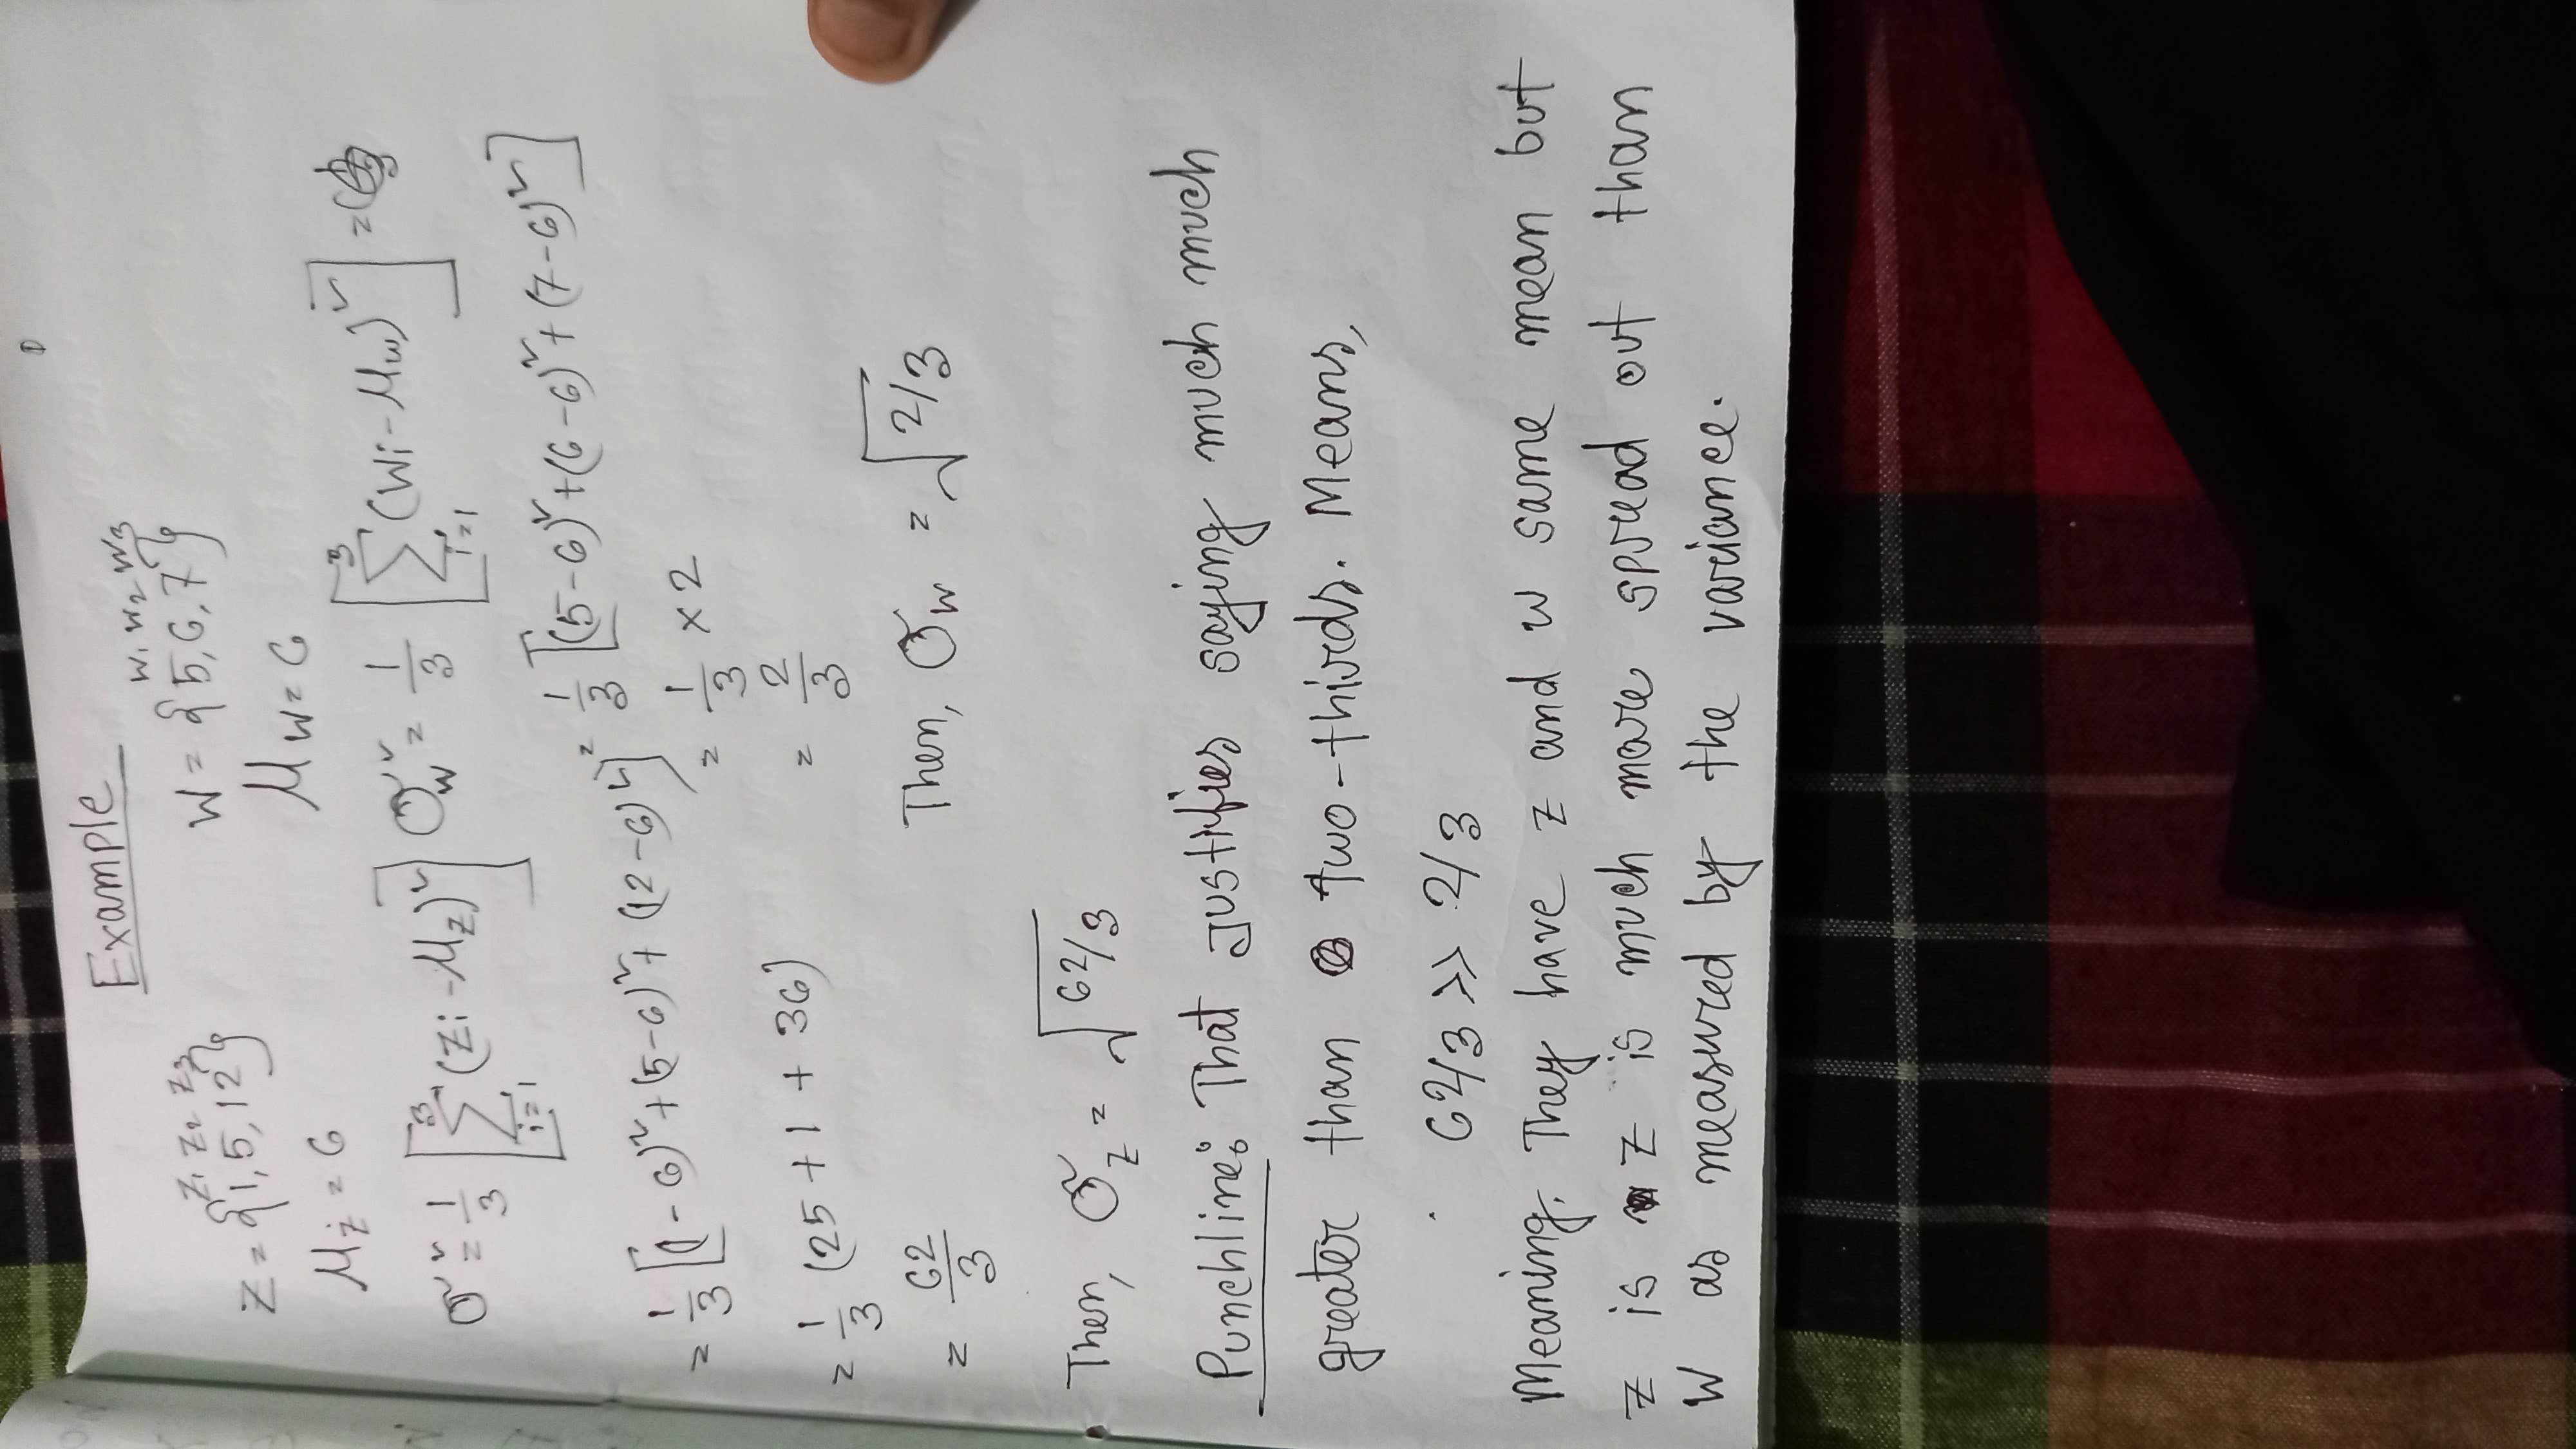 Example
Z₁ Z₂ Z₃
Z = {1, 5, 12}
μz = 6
σ² = 1/3 [∑ i=1 3 (Zi - μz)²]
= 1/3 [(1-6)² + (5-6)² + (12-6)²]
= 1/3 (25 + 1 + 36)
= 62/3
Then, σz = √62/3
W₁ W₂ W₃
W = {5, 6, 7}
μw = 6
σw² = 1/3 [∑ i=1 3 (Wi - μw)²] =
= 1/3 [(5-6)² + (6-6)² + (7-6)²]
= 1/3 × 2
= 2/3
Then, σw = √2/3
Punchline: That justifies saying much much
greater than two-thirds. Means,
62/3 >> 2/3
Meaning. They have z and w same mean but
z is z is much more spread out than
W as measured by the variance.